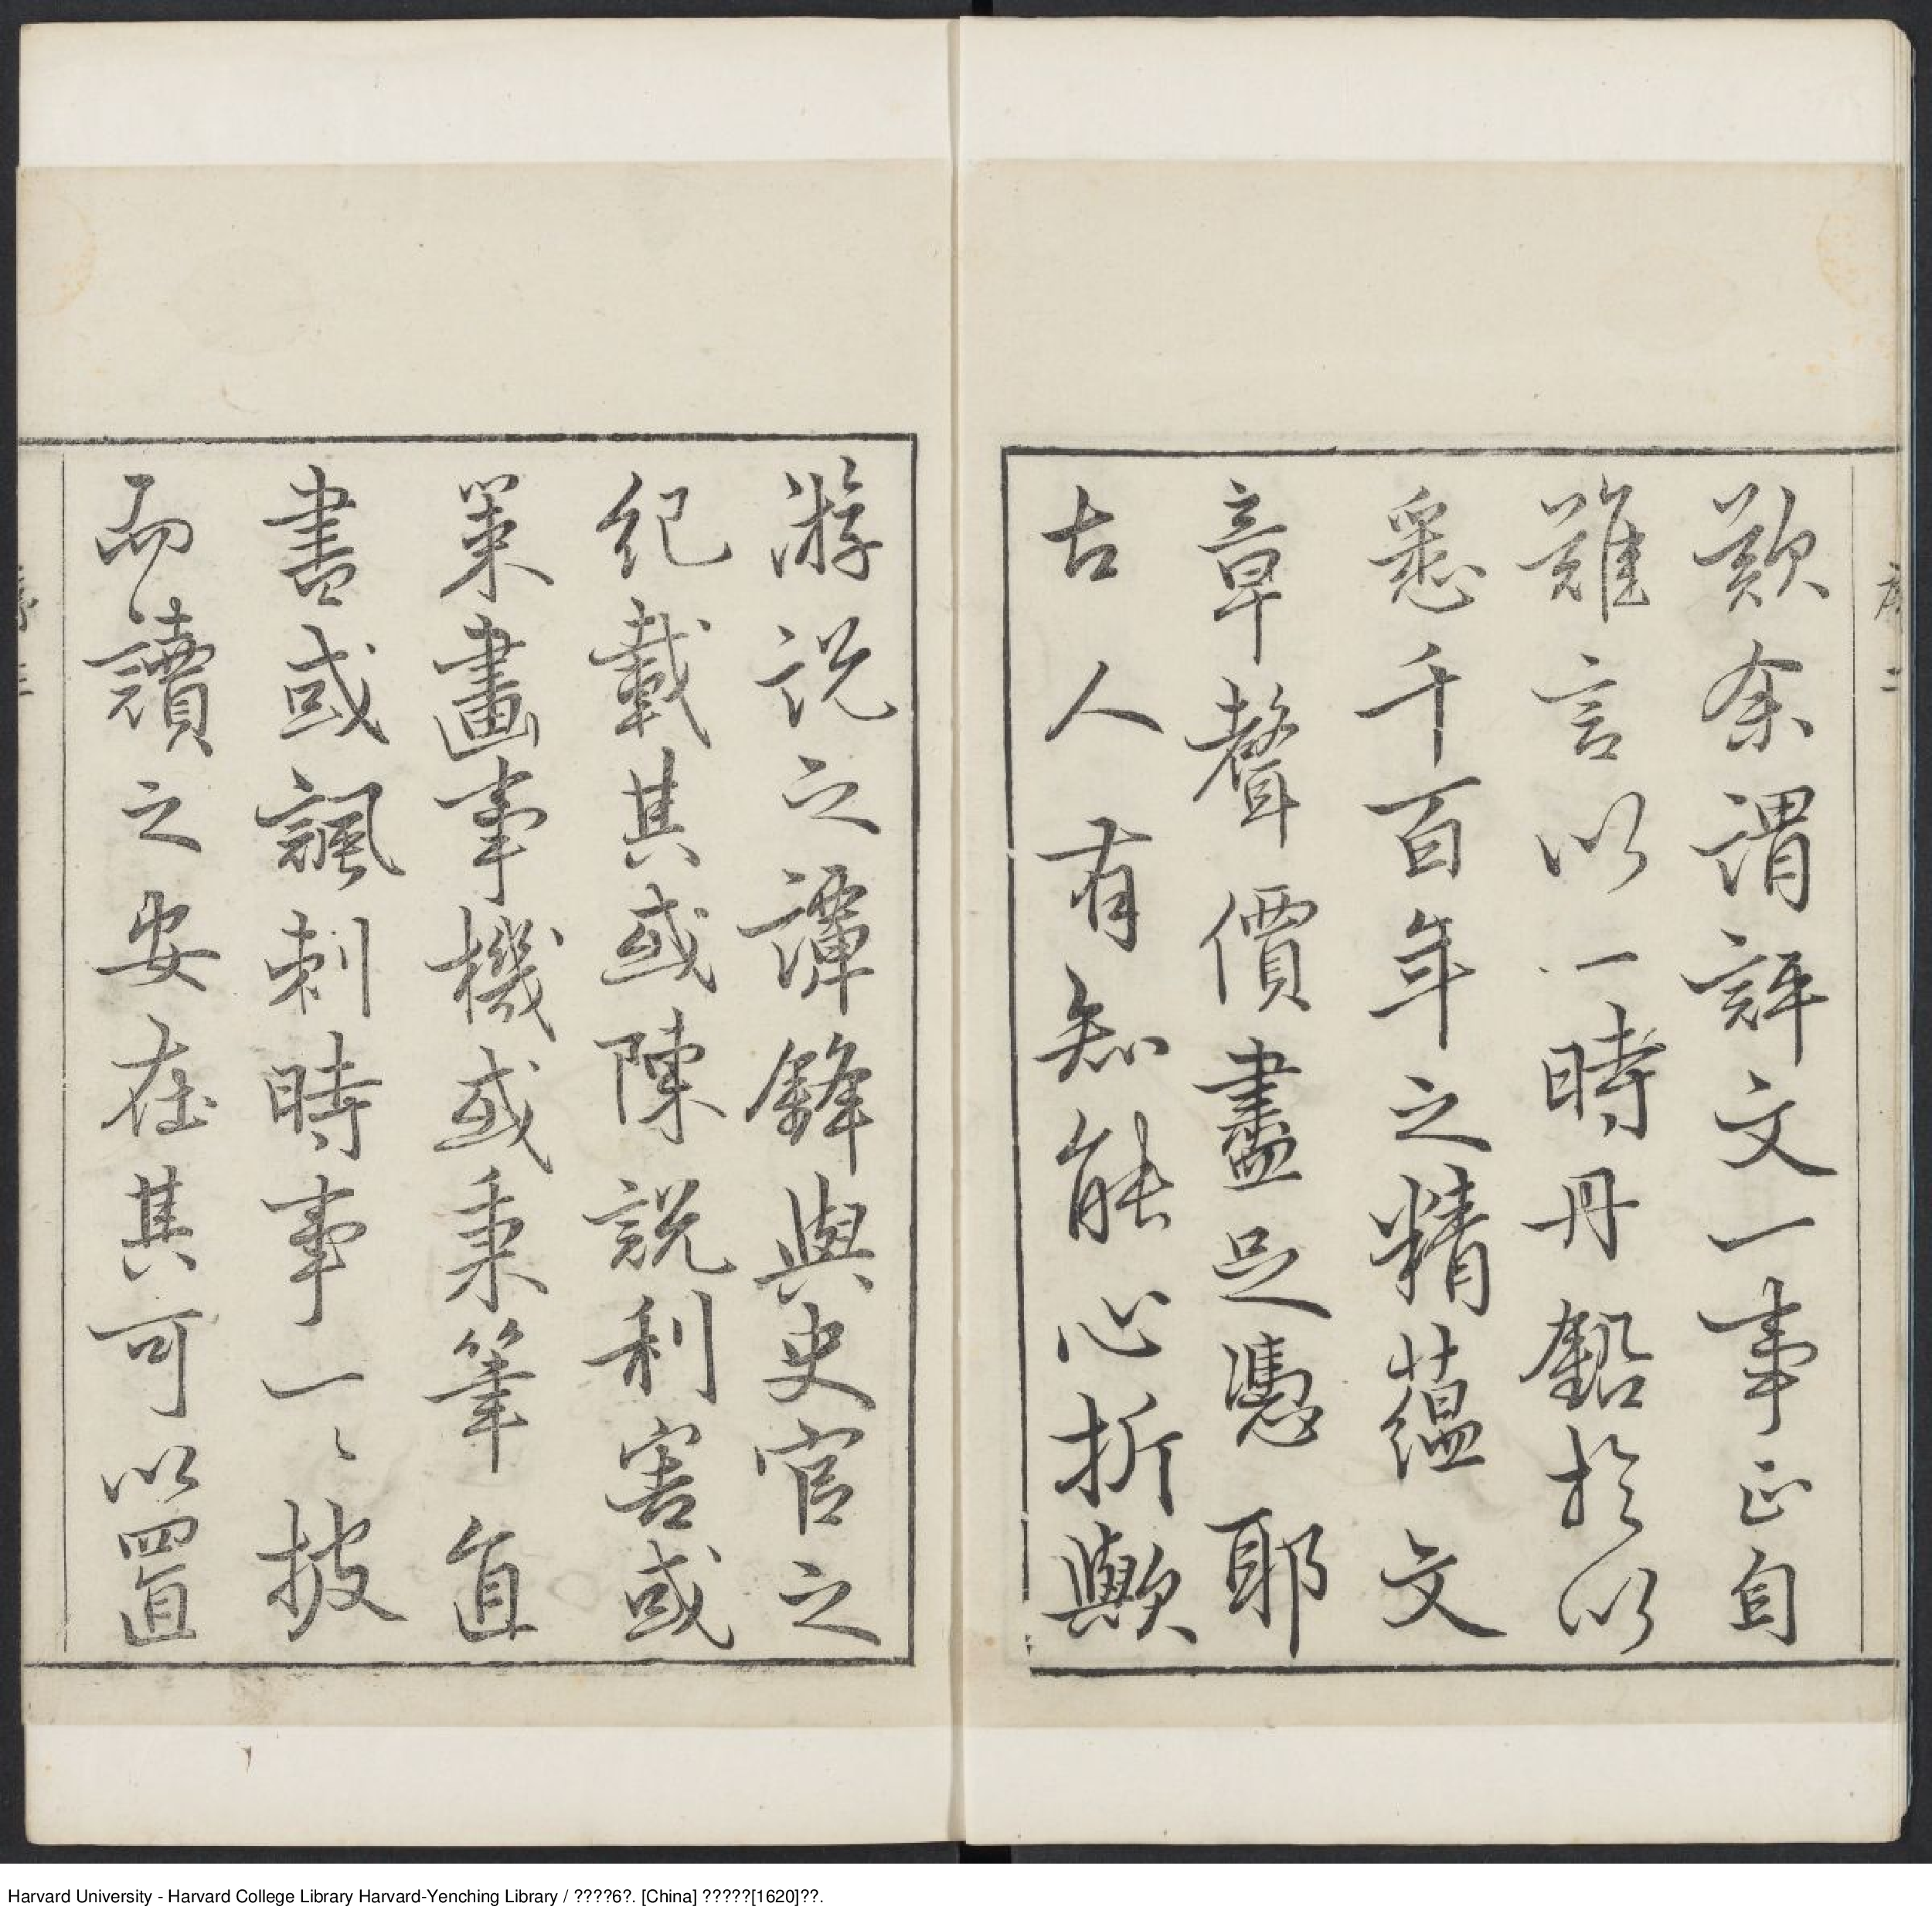 序 二
歎余謂評文一事正自
難言以一時丹鉛於以
悉千百年之精蘊文
章聲價盡足憑耶
古人有知能心折歟
游説之譚鋒與史官之
紀載其或陳説利害或
策畫事機或秉筆直
書或諷刺時事一〻披
而讀之安在其可以置
Harvard University - Harvard College Library Harvard-Yenching Library / ????6?. [China] ?????[1620]??.